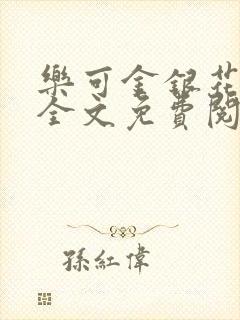 樂可金銀花
全文免費閱
孫紅偉